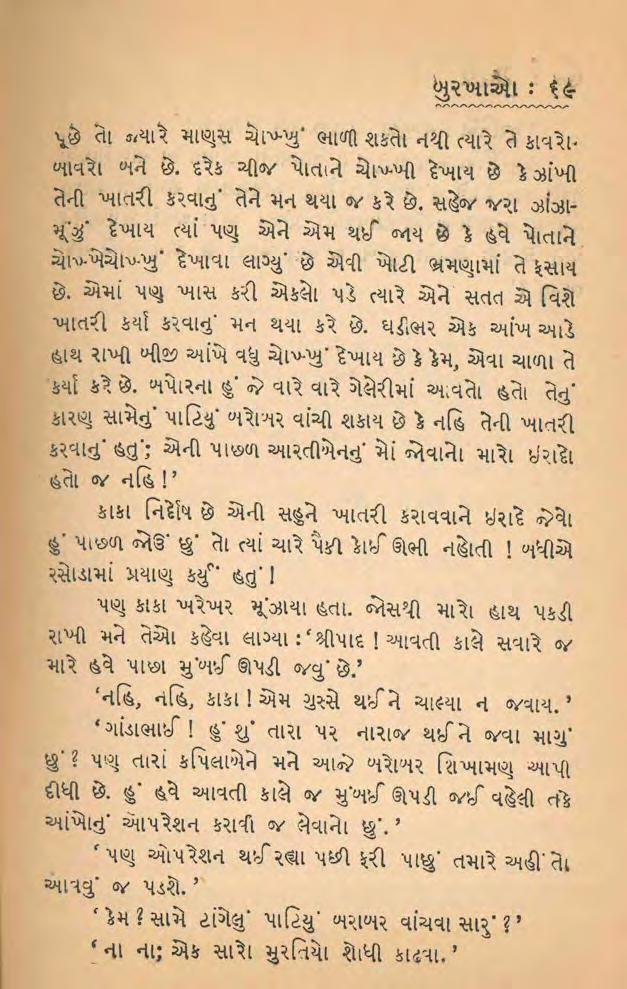 બુરખાઓ : ૬૯
પૂછે તો જ્યારે માણસ ચોખ્ખું ભાળી શકતો નથી ત્યારે તે કાવરો-
બાવરો બને છે. દરેક ચીજ પોતાને ચોખ્ખી દેખાય છે કે ઝાંખી
તેની ખાતરી કરવાનું તેને મન થયા જ કરે છે. સહેજ જરા ઝાંઝા-
મૂંઝું દેખાય ત્યાં પણ એને એમ થઈ જાય છે કે હવે પોતાને
ચોખ્ખેચોખ્ખું દેખાવા લાગ્યું છે એવી ખોટી ભ્રમણામાં તે ફસાય
છે. એમાં પણ ખાસ કરી એકલો પડે ત્યારે એને સતત એ વિશે
ખાતરી કર્યા કરવાનું મન થયા કરે છે. ઘડીભર એક આંખ આડે
હાથ રાખી બીજી આંખે વધુ ચોખ્ખું દેખાય છે કે કેમ, એવા ચાળા તે
કર્યા કરે છે. બપોરના હું જે વારે વારે ગેલેરીમાં આવતો હતો તેનું
કારણ સામેનું પાટિયું બરોબર વાંચી શકાય છે કે નહિ તેની ખાતરી
કરવાનું હતું; એની પાછળ આરતીબેનનું મોં જોવાનો મારો ઇરાદો
હતો જ નહિ !’
કાકા નિર્દોષ છે એની સહુને ખાતરી કરાવવાને ઇરાદે જેવો
હું પાછળ જોઉં છું તો ત્યાં ચારે પૈકી કોઈ ઊભી નહોતી ! બધીએ
રસોડામાં પ્રયાણ કર્યું હતું !
પણ કાકા ખરેખર મૂંઝાયા હતા. જોસથી મારો હાથ પકડી
રાખી મને તેઓ કહેવા લાગ્યા : ‘શ્રીપાદ ! આવતી કાલે સવારે જ
મારે હવે પાછા મુંબઈ ઊપડી જવું છે.’
‘નહિ, નહિ, કાકા ! એમ ગુસ્સે થઈને ચાલ્યા ન જવાય. ’
‘ ગાંડાભાઈ ! હું શું તારા પર નારાજ થઈને જવા માગું
છું ? પણ તારાં કપિલાબેને મને આજે બરોબર શિખામણ આપી
દીધી છે. હું હવે આવતી કાલે જ મુંબઈ ઊપડી જઈ વહેલી તકે
આંખોનું ઑપરેશન કરાવી જ લેવાનો છું. ’
‘ પણ ઓપરેશન થઈ રહ્યા પછી ફરી પાછું તમારે અહીં તો
આવવું જ પડશે. ’
‘ કેમ ? સામે ટાંગેલું પાટિયું બરાબર વાંચવા સારું ? ’
‘ ના ના; એક સારો મુરતિયો શોધી કાઢવા. ’